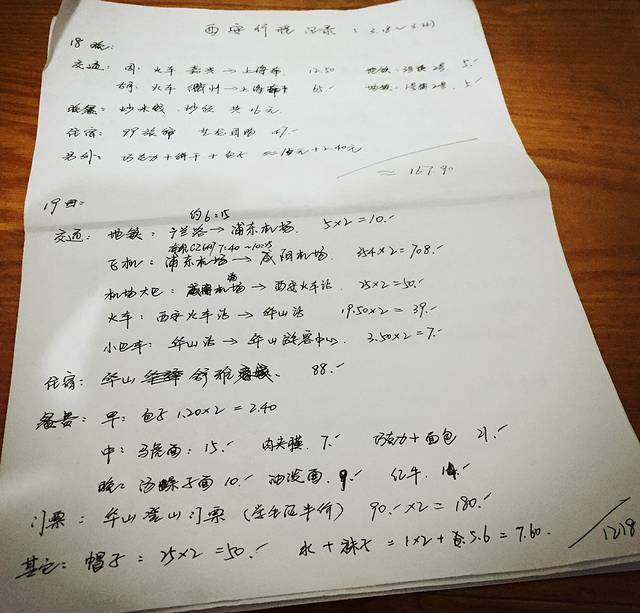 西安行程记录:
18晚:
交通: 火车 嘉兴→上海南 12.50 地铁: 2号 5.-
火车 衢州→上海南 65.- 地铁: 2号 5.-
晚餐: 炒米线 炒 共16元
住宿: 99旅馆 47.-
另外: 巧克力+饼干+ +2.40元
≈ 167.90
19日:
约6:15
交通: 地铁: 广兰路→浦东机场. 5×2=10.-
7:40~10:35
飞机: 浦东机场→咸阳机场 354×2=708.-
机场大巴: 机场→西安火车站 25×2=50.-
火车: 西安火车站→华山站 19.50×2=39.-
小巴车: 华山站→华山游客中心 3.50×2=7.-
住宿: 华山 舒雅 88.-
餐费: 早: 包子 1.20×2=2.40
中: 面: 15.- 肉夹馍. 7.- 巧克力+面包 21.-
晚: 面 10.- 油泼面. 9.- 红牛.
门票: 华山登山门票 (学生证半价) 90.-×2=180.-
其它: 帽子: 25×2=50.- 水+ =1×2+ 5.6=7.60.
1218